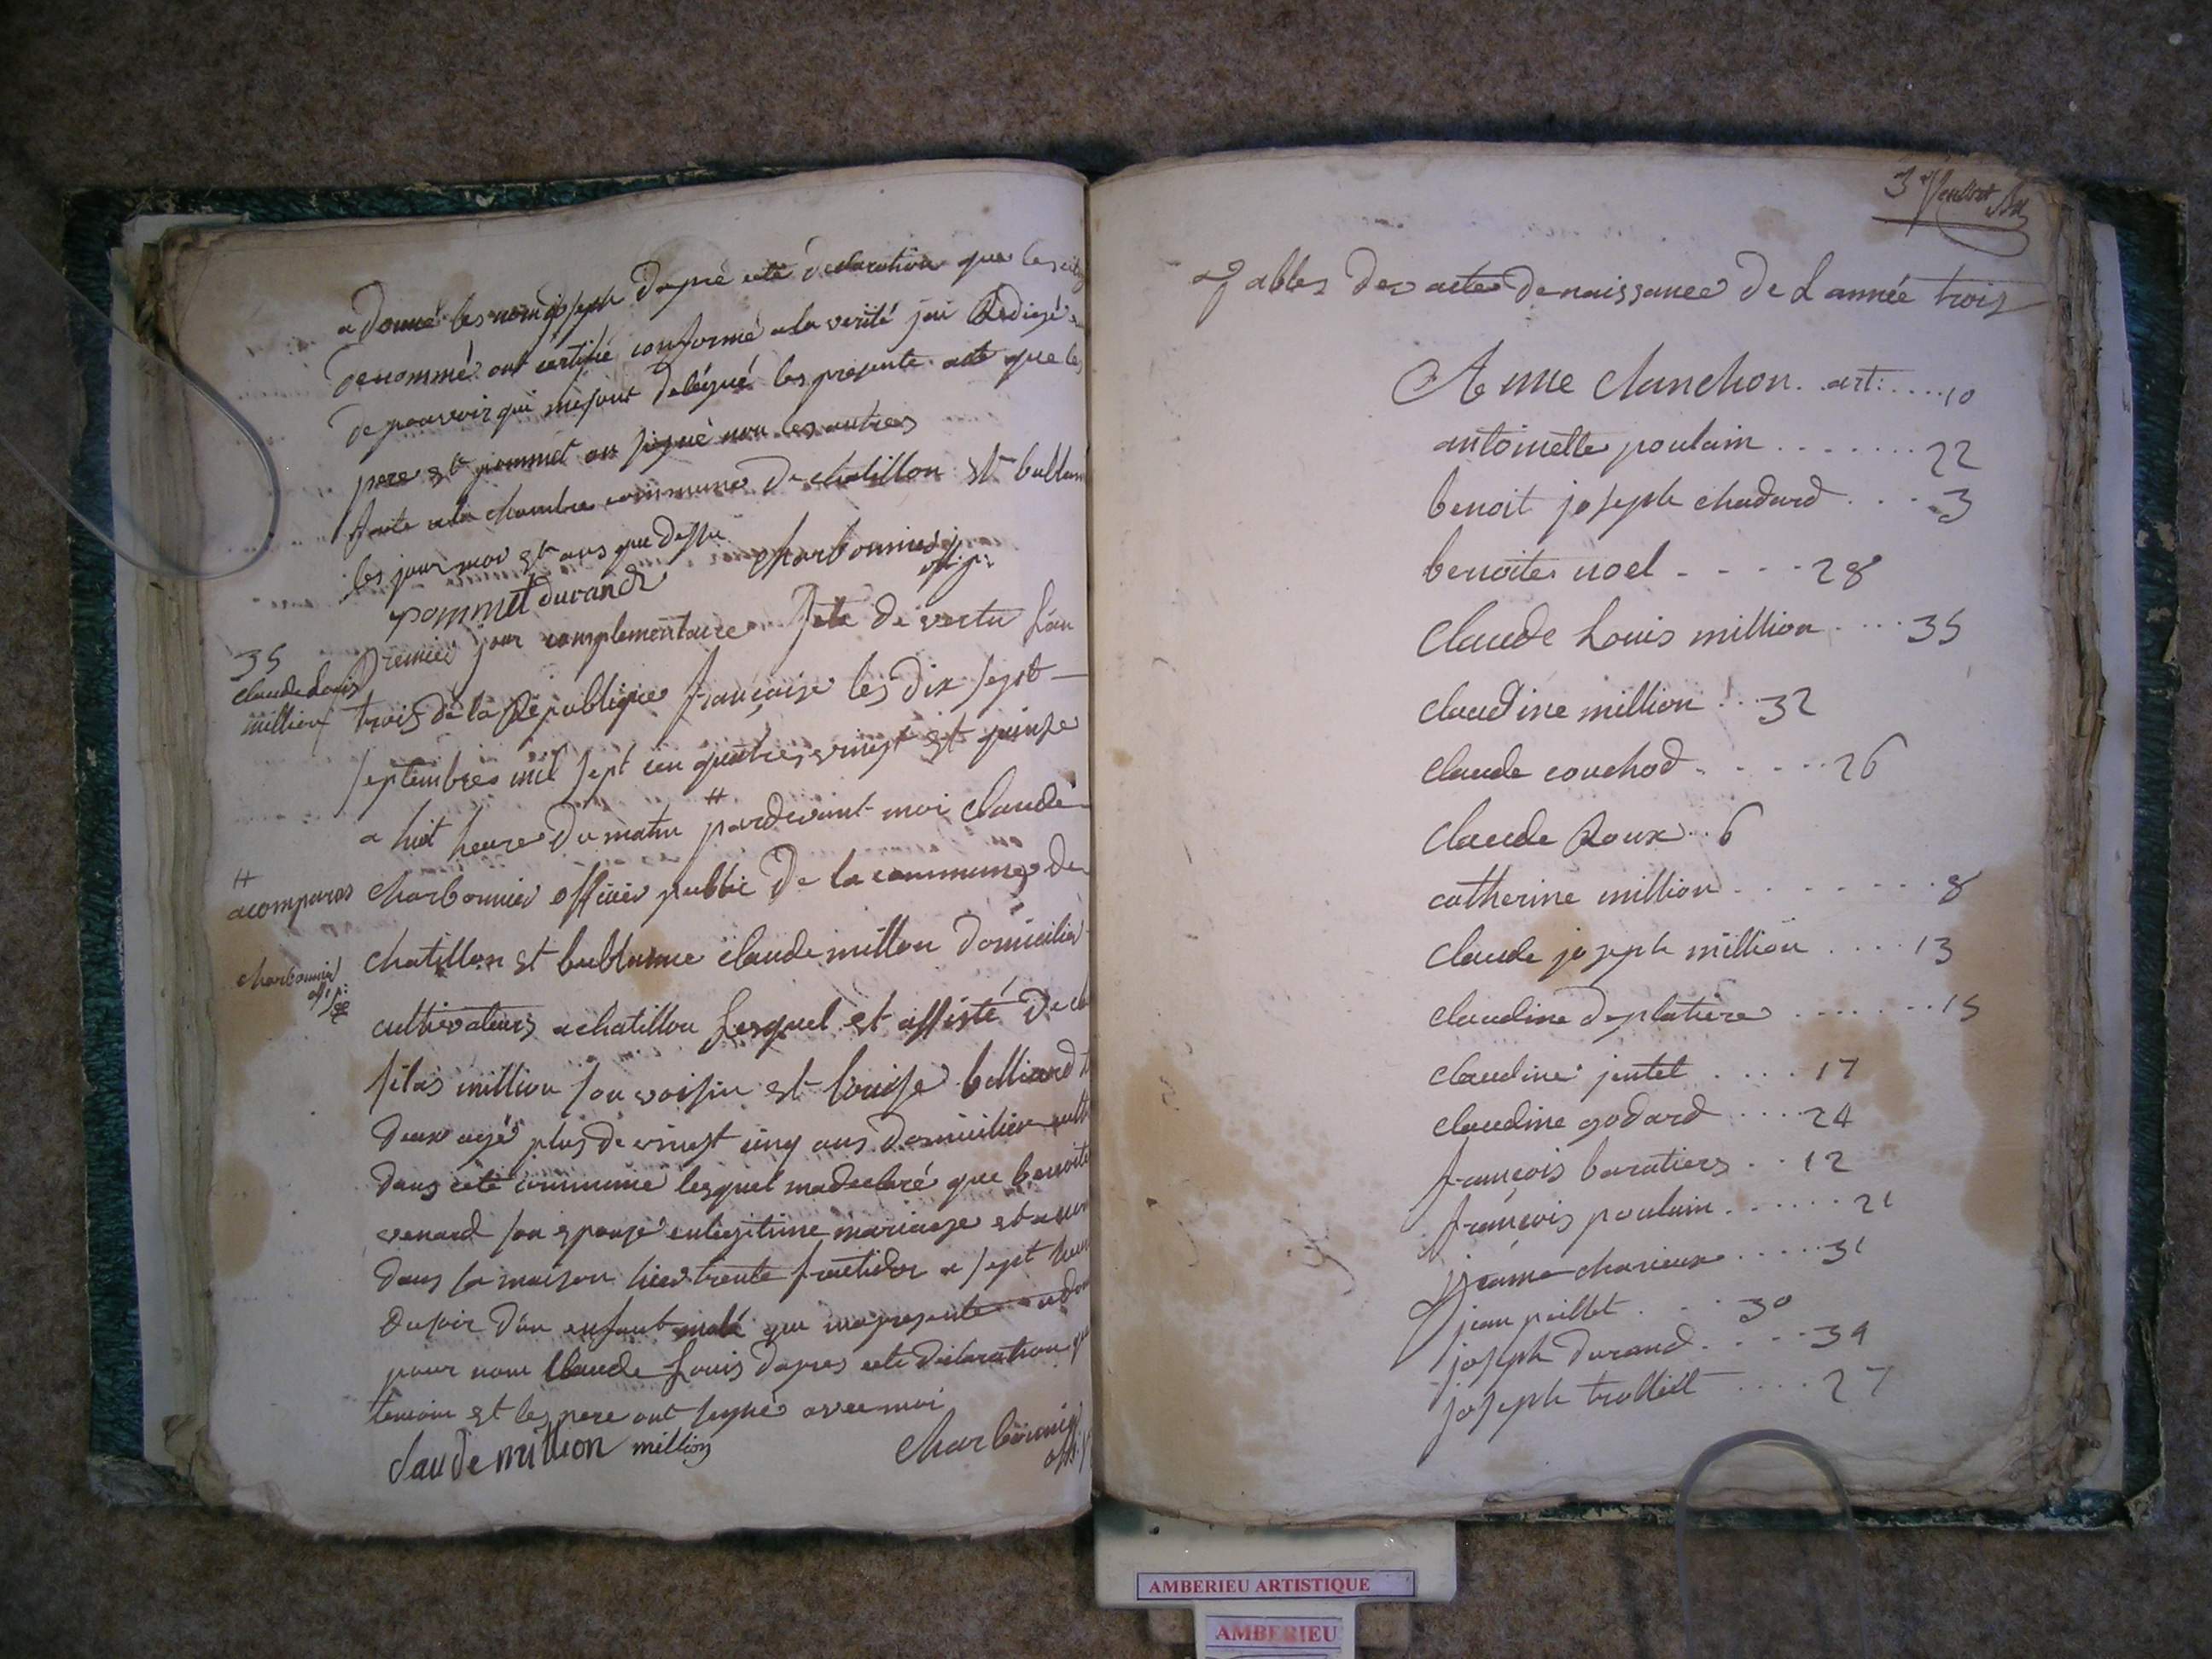 a donné les nom joseph dapré cete declaration que les
denommé ont certifié conforme a la verité jai Redigé
de pouvoir qui me sont delégué les presente acte que les
pere et pommet on signé non les autres
faite a la chambre commune de chatillon et bublane
les jour moi et ans que dessu
charbonnier off: p:
pommet durand
35
claude Louis
million
Premier jour complementaire fete de vertu Lan
trois de la Republique française les dix sept
septembres mil sept cen quatres vingt et quinze
a huit heure du matin # pardevant moi claude
#
acomparus
charbonnier
off: p:
charbonnier officier public de la commune de
chatillon et bublanne claude million domicilié
cultivateurs a chatillon Lesquel et assisté de
silas million son voisin et louise belliard
deux agé plus de vingt cinq ans domicilier
dans cete commune lesquel ma declaré que benoite
venard son epouse en legitime mariage et
dans sa maison hier trente fructidor a sept
du soir dun enfant malé que ma presenté
pour nom Claude Louis dapres cete declaration
temoin et les pere ont signé avec moi
claude million million
charbonnier
off:
3
tables des actes de naissance de L année trois
Anne clanchon . art: .... 10
antoinette poulain ....... 22
benoit joseph chadard ... 3
benoite noel .... 28
Claude Louis million .... 35
claudine million ... 32
claude couchod ..... 26
Claude Roux .. 6
catherine million ........ 8
Claude joseph million .... 13
claudine deplatiere ....... 15
claudine jentet .... 17
claudine godard .... 24
françois baratiers .. 12
françois poulain ...... 21
charieux ..... 31
jean paillet ... 30
joseph durand ... 34
joseph trolliet .... 27
AMBERIEU ARTISTIQUE
AMBERIEU